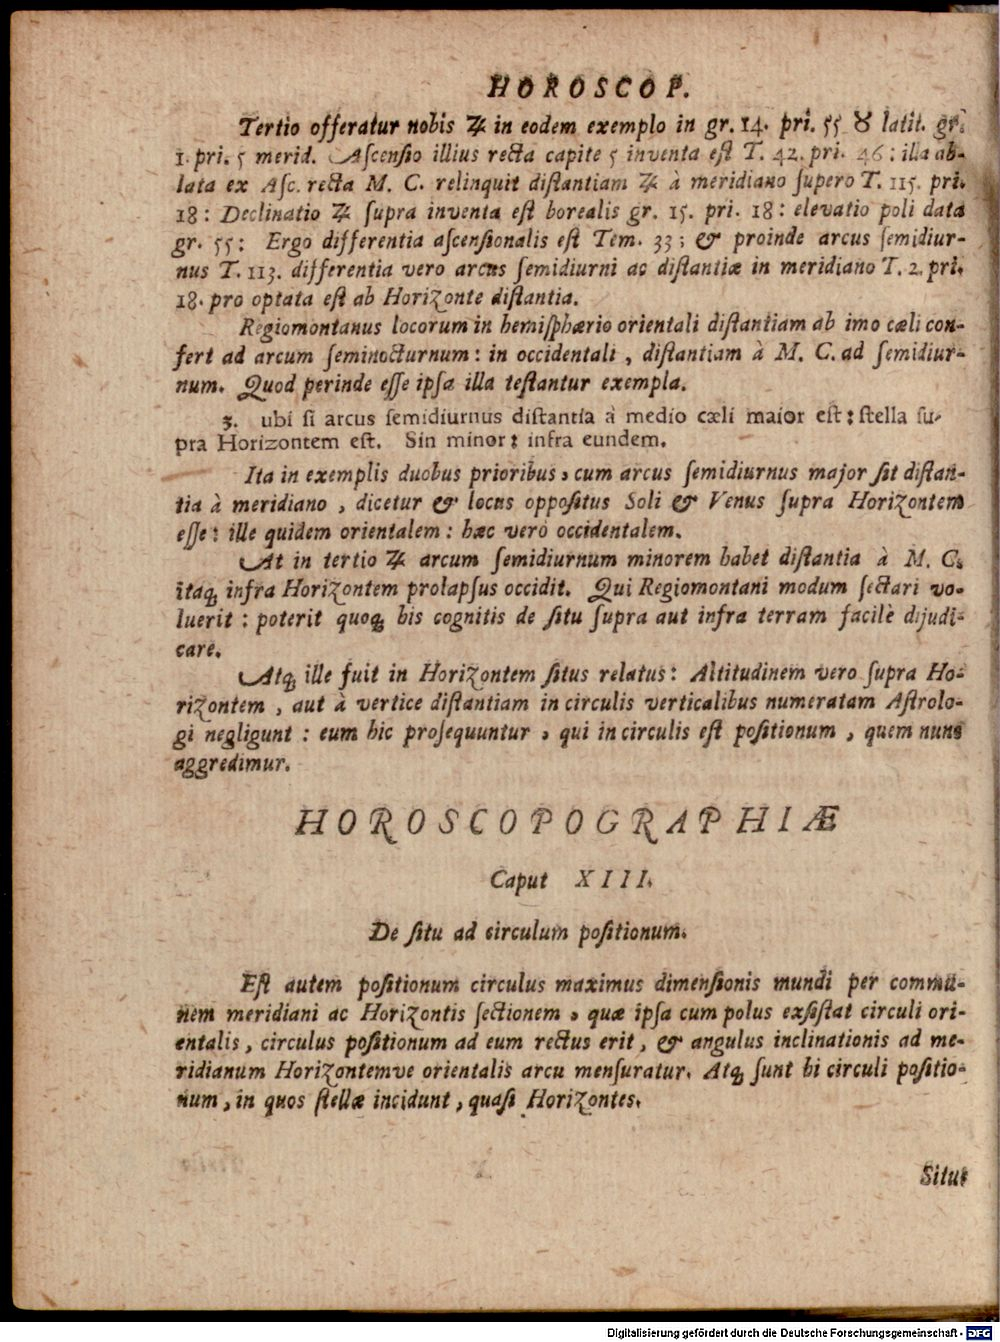 HOROSCOP.
Tertio offeratur nobis ♃ in eodem exemplo in gr. 14. pri. 55 ♉ latit. gr.
1. pri. 5 merid. Aſcenſio illius recta capite 5 inventa eſt T. 42. pri. 46: illa ab-
lata ex Aſc. recta M. C. relinquit diſtantiam ♃ à meridiano ſupero T. 115. pri.
18: Declinatio ♃ ſupra inventa eſt borealis gr. 15. pri. 18: elevatio poli data
gr. 55: Ergo differentia aſcenſionalis eſt Tem. 33; & proinde arcus ſemidiur-
nus T. 113. differentia vero arcus ſemidiurni ac diſtantiæ in meridiano T. 2. pri.
18. pro optata eſt ab Horizonte diſtantia.
Regiomontanus locorum in hemiſphærio orientali diſtantiam ab imo cæli con-
fert ad arcum ſeminocturnum: in occidentali, diſtantiam à M. C. ad ſemidiur-
num. Quod perinde eſſe ipſa illa teſtantur exempla.
3. ubi ſi arcus ſemidiurnus diſtantia à medio cæli maior eſt: ſtella ſu-
pra Horizontem eſt. Sin minor: infra eundem.
Ita in exemplis duobus prioribus, cum arcus ſemidiurnus major ſit diſtan-
tia à meridiano, dicetur & locus oppoſitus Soli & Venus ſupra Horizontem
eſſe: ille quidem orientalem: hæc verò occidentalem.
At in tertio ♃ arcum ſemidiurnum minorem habet diſtantia à M. C.
itaq; infra Horizontem prolapſus occidit. Qui Regiomontani modum ſectari vo-
luerit: poterit quoq; his cognitis de ſitu ſupra aut infra terram facilè dijudi-
care.
Atq; ille fuit in Horizontem ſitus relatus: Altitudinem vero ſupra Ho-
rizontem, aut à vertice diſtantiam in circulis verticalibus numeratam Aſtrolo-
gi negligunt: eum hic proſequuntur, qui in circulis eſt poſitionum, quem nunc
aggredimur.
HOROSCOPOGRAPHIÆ
Caput XIII.
De ſitu ad circulum poſitionum.
Eſt autem poſitionum circulus maximus dimenſionis mundi per commu-
nem meridiani ac Horizontis ſectionem, quæ ipſa cum polus exſiſtat circuli ori-
entalis, circulus poſitionum ad eum rectus erit, & angulus inclinationis ad me-
ridianum Horizontemve orientalis arcu menſuratur. Atq; ſunt hi circuli poſitio-
num, in quos ſtellæ incidunt, quaſi Horizontes.
Situs
Digitalisierung gefördert durch die Deutsche Forschungsgemeinschaft - DFG